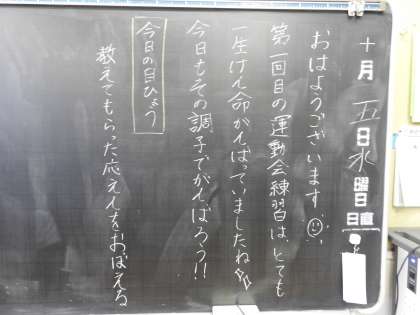 十月五日水曜日
日直
おはようございます
第一回目の運動会練習は、とても
一生けん命がんばっていましたね
今日もその調子でがんばろう!!
今日の目ひょう
教えてもらった応えんをおぼえる